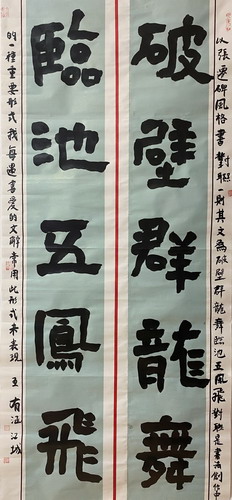 以張遷碑風格書對聯一則其文為破壁群龍舞臨池五鳳飛對聯是書法創作中
破壁群龍舞
臨池五鳳飛
的一種重要形式我每遇喜愛的文辭常用此形式来表現